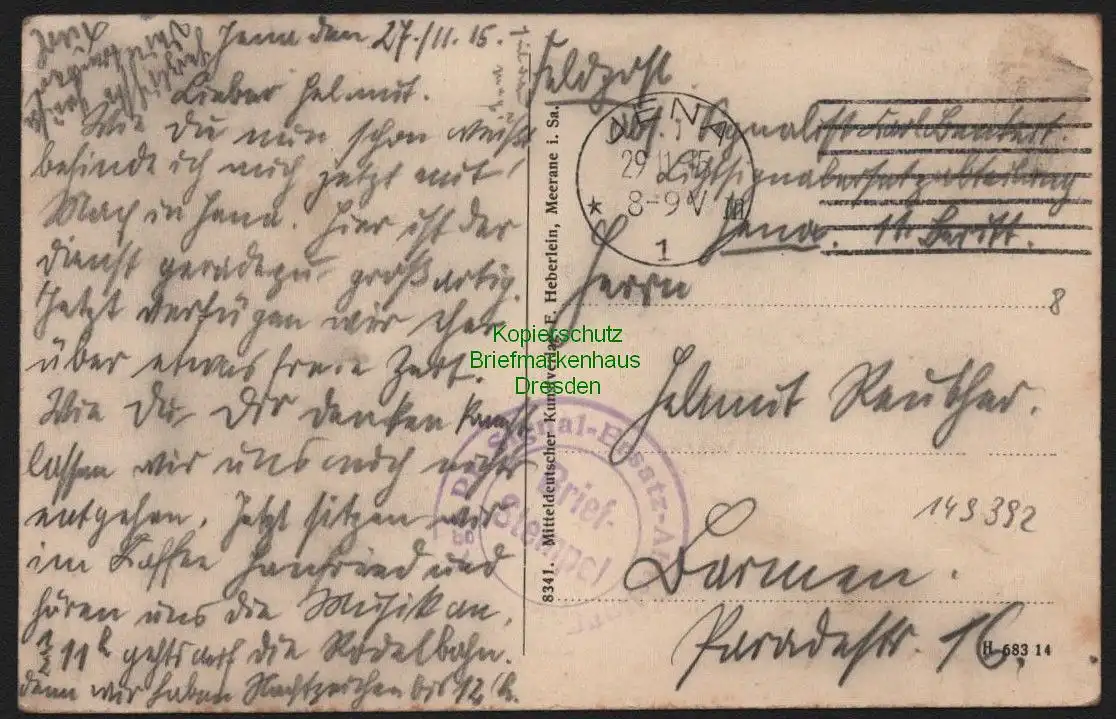 Jena den 27/11.15.
Lieber Helmut.
Wie Du nun schon weißt
befinde ich mich jetzt mit
Mach in Jena. Hier ist der
Dienst geradezu großartig.
Jetzt verfügen wir eher
über etwas freie Zeit.
Wie Du Dir denken kannst
lassen wir uns auch nichts
entgehen. Jetzt sitzen wir
im Kaffee Hanfried und
hören uns die Musik an,
½ 11 h gehts auf die Rodelbahn.
denn wir haben Nachtzeichen bis 12 h.
Feldpost
Abs. Signalist
Lichtsignalersatzabteilung
Jena.
JENA
29.11.15
8-9 V
* 1
Herrn
8
Helmut Reuther.
149392
Barmen.
Paradestr. 16.
H 683 14
8341. Mitteldeutscher Kunstverlag, F. Heberlein, Meerane i. Sa.
Signal-Ersatz-
Brief-
Stempel
Kopierschutz
Briefmarkenhaus
Dresden